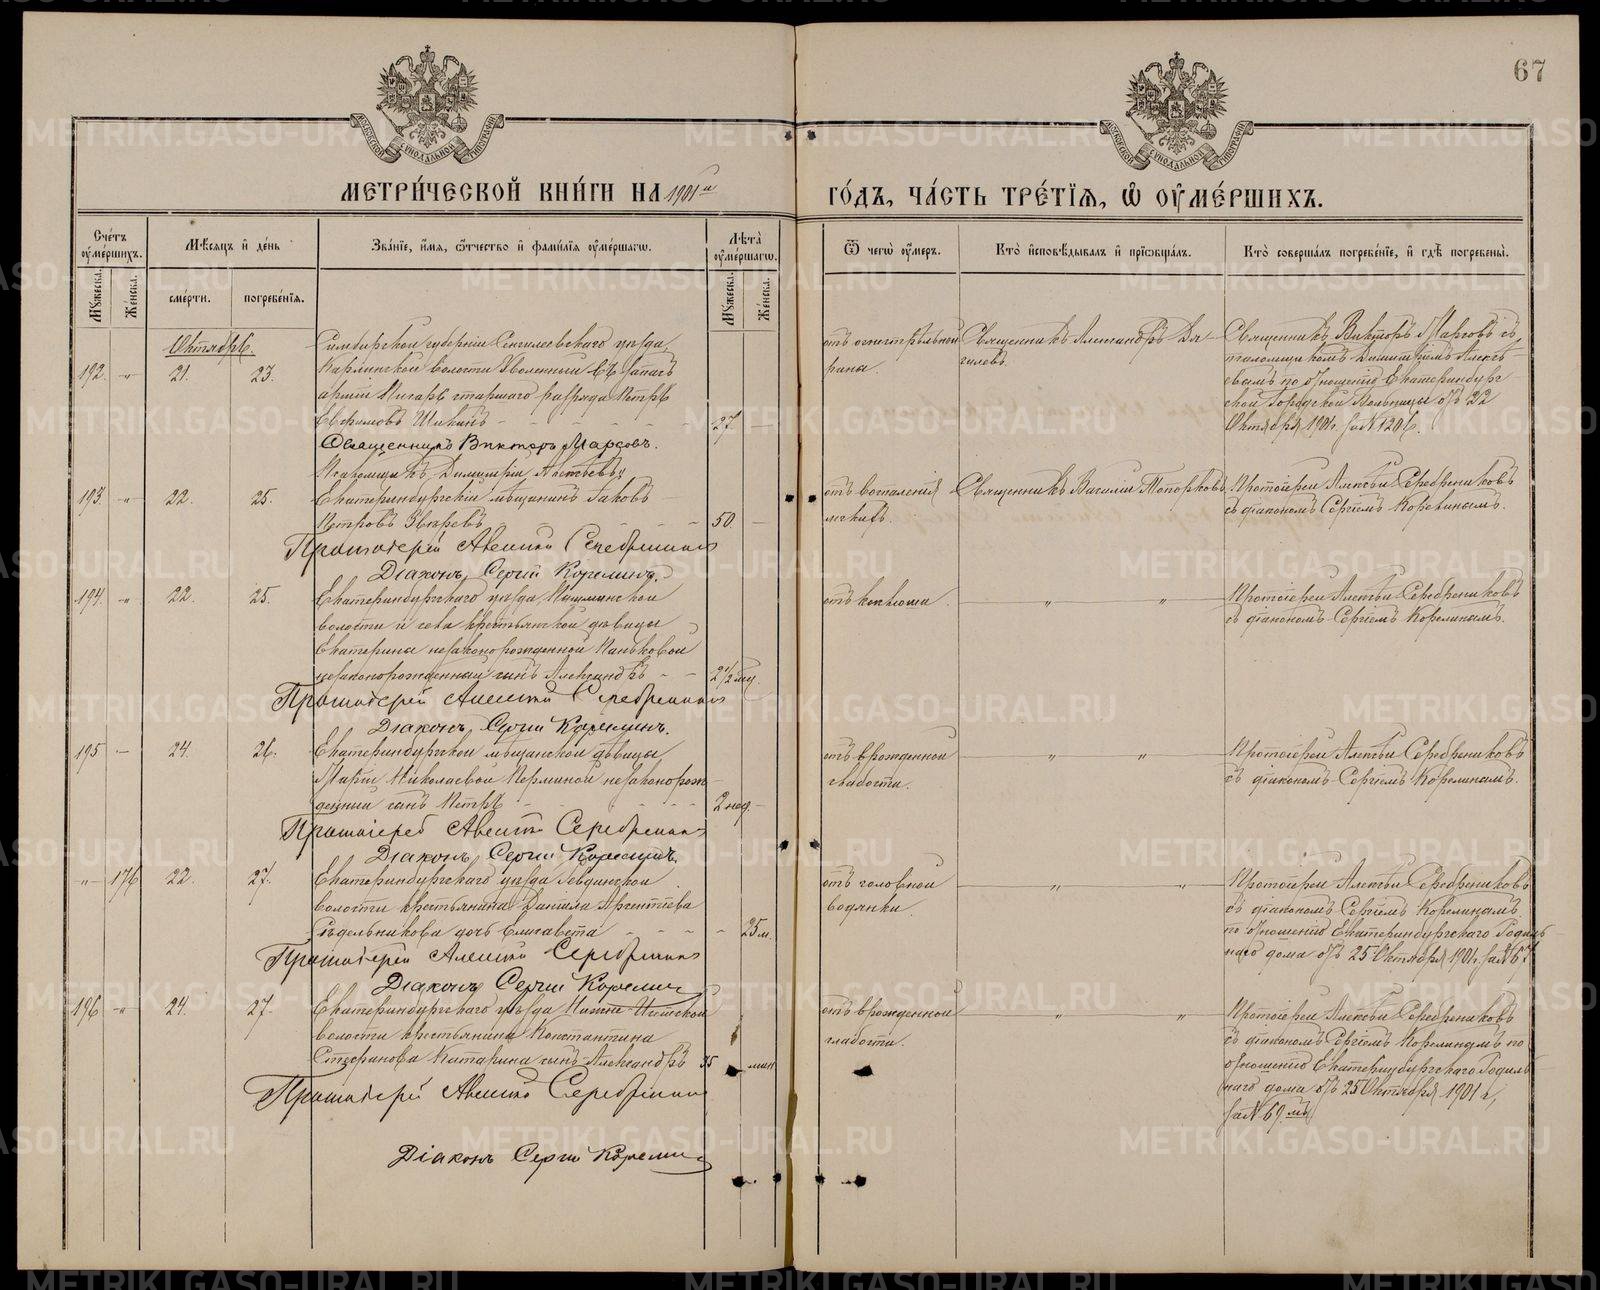 67
МЕТРИ́ЧЕСКОЙ КНИ́ГИ НА 1901 й ГО́ДЪ, ЧА́СТЬ ТРЕ́ТІЯ, Ѡ ОУ҆МЕ́РШИХЪ.
Сче́тъ оу҆ме́ршихъ.
Мѣ́сяцъ и҆ де́нь
Зва́нїе, и҆́мя, ѻ҆́тчество и҆ фами́лїя оу҆ме́ршагѡ.
Лѣта̀ оу҆ме́ршагѡ.
Ѿ чегѡ̀ оу҆́меръ.
Кто̀ и҆сповѣ́дывалъ и҆ прїѡбща́лъ.
Кто̀ соверша́лъ погребе́нїе, и҆ гдѣ̀ погребены̀.
Му́жеска.
Же́нска.
сме́рти.
погребе́нїя.
Му́жеска.
Же́нска.
Октябрь.
192 - " - 21. 23.
Симбирской губерніи Сенгилеевскаго уѣзда
Карлинской волости Уволенный въ запасъ
арміи старшаго разряда Петръ
Евфимовъ Шикинъ - - 27.
Священникъ Викторъ Марсовъ.
Псаломщикъ Димитрій
отъ огнестрѣльной
рана.
Священникъ Александръ Дя-
гилевъ.
Священникъ Викторъ Марсовъ съ
псаломщикомъ Димитріемъ
по отношенію Екатеринбург-
ской Городской Больницы отъ 22
Октября 1901 г. за N 1206.
193. - " - 22. 25.
Екатеринбургскій мѣщанинъ Іаковъ
Петровъ Звѣревъ - - 50.
Протоіерей Алексій Серебрениковъ
Діаконъ Сергій Корелинъ.
отъ воспаленія
легкихъ.
Священникъ Василій Топорковъ.
Протоіерей Алексѣй Серебрениковъ
съ діакономъ Сергіемъ Корелинымъ.
194. - " - 22. 25.
Екатеринбургскаго уѣзда, Пышминской
волости и села крестьянской дѣвицы
Екатерины незаконорожденной Паньковой
незаконорожденный сынъ Александръ - - 2 1/2 мѣс.
Протоіерей Алексій Серебрениковъ
Діаконъ Сергій Корелинъ.
отъ коклюша
" "
Протоіерей Алексѣй Серебрениковъ
съ діакономъ Сергіемъ Корелинымъ.
195 - 24. 26.
Екатеринбургской мѣщанской дѣвицы
Маріи Николаевой незаконорож-
денный сынъ Петръ - - 2 нед.
Протоіерей Алексій Серебрениковъ
Діаконъ Сергій Корелинъ.
отъ врожденной
слабости.
" "
Протоіерей Алексѣй Серебрениковъ
съ діакономъ Сергіемъ Корелинымъ.
- " - 176 22. 27.
Екатеринбургскаго уѣзда Ревдинской
волости крестьянина Даніила
Сѣдельникова дочь Елисавета - - 25 м.
Протоіерей Алексій Серебрениковъ
Діаконъ Сергій Корелинъ
отъ головной
водянки.
" "
Протоіерей Алексѣй Серебрениковъ
съ діакономъ Сергіемъ Корелинымъ
по отношенію Екатеринбургскаго Родиль-
наго дома отъ 25 Октября 1901 г. за N 67
196 - " - 24. 27.
Екатеринбургскаго уѣзда Нижне-Исетской
волости крестьянина Константина
Стефанова Катарина сынъ Александръ 35 мин
Протоіерей Алексій Серебрениковъ
Діаконъ Сергій Корелинъ
отъ врожденной
слабости.
" "
Протоіерей Алексѣй Серебрениковъ
съ діакономъ Сергіемъ Корелинымъ по
отношенію Екатеринбургскаго Родиль-
наго дома отъ 25 Октября 1901 г.,
METRIKI.GASO-URAL.RU